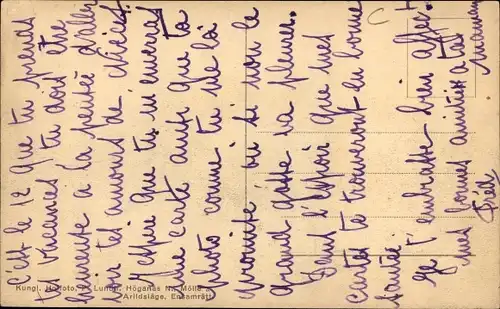 C'est le 12 que tu prends
tes vacances tu dois être
contente a la pensée d'aller
voir tes amours de chéris.
J'espère que tu m'enverras
une carte ainsi que ta
photo comme tu me l'a
promise ou si non le
grand gosse va pleurer.
Dans l'espoir que mes
cartes te trouveront en bonne
santée
Je t'embrasse bien affect.
mes bonnes amitiés a tes
maman
Fred.
Kungl. Hoffoto, P. Lundh, Höganäs N:r Mölle a
Arildsläge, Ensamrätt